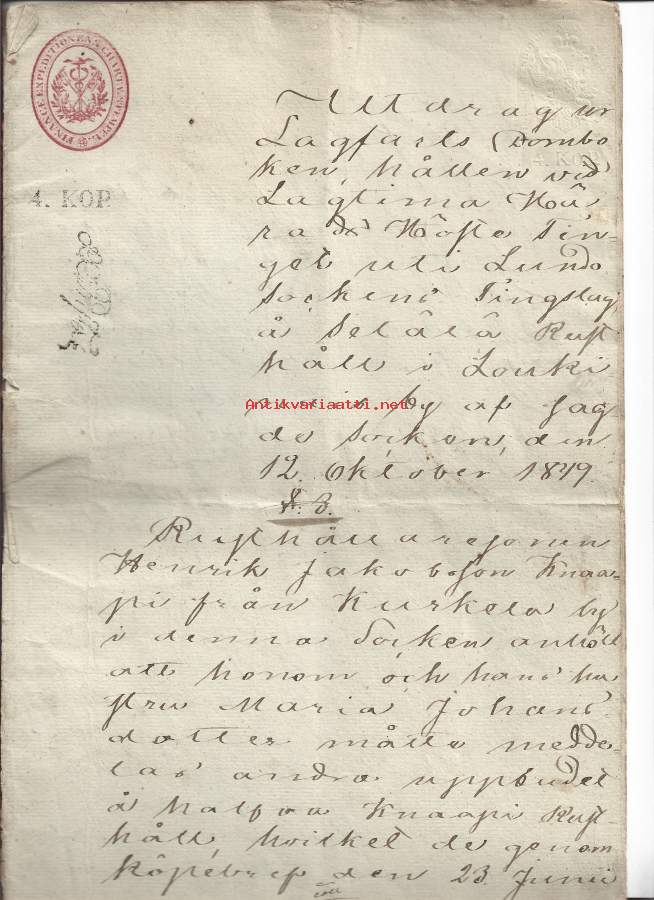 FINANCE EXPEDITIONENS CHARTÆ STEMPEL
4. KOP.
Utdrag ur
Lagfarts Dombo
ken, hållen vid
Lagtima Hä
rads Höste Tin-
get uti Lundo
Sockens Tingslag,
å Selälä Rust
håll i Louki
by af Sag
do Socken, den
12. October 1849.
§. 3.
Rusthållaresonen
Henrik Jakobsson Knaa-
pi från Kurkela by
i denna Socken anhöll
att honom och hans hu
stru Maria Johans
dotter måtte medde-
las andra uppbudet
å halfva Knaapi Rust-
håll, hvilket de genom
köpebref den 23 Junii
Antikvariaatti.net